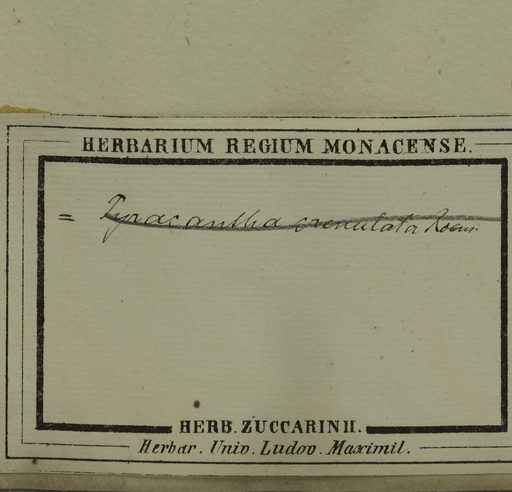 HERBARIUM REGIUM MONACENSE.
= Pyracantha crenulata Roem.
HERB. ZUCCARINII.
Herbar. Univ. Ludov. Maximil.